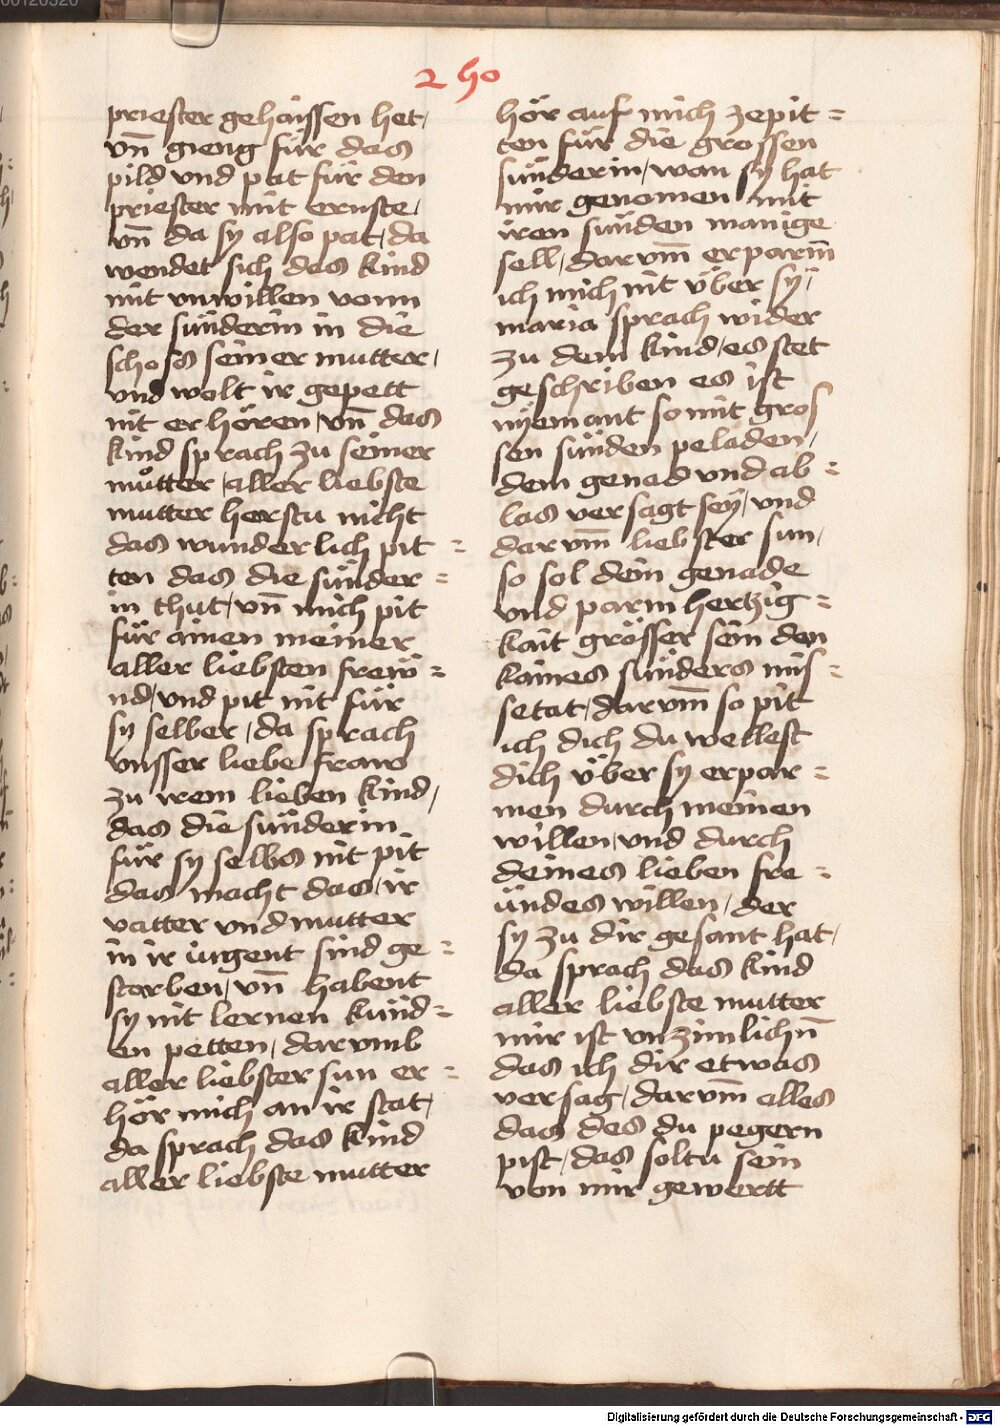 00126326
2 ho
priester gehaissen het,
vn̄ gieng für das
pild vnd pat für den
priester mit ernste,
vn̄ da sy also pat, da
wendet sich das kind
mit vnwillen vonn
der sünderin in die
schoss seiner mutter,
vnd wolt ir gepett
nit erhören, vn̄ das
kind sprach zu seiner
můtter, aller liebste
mutter herstu nicht
das wunderlich pit =
ten das die sünder =
in thut, vn̄ mich pit
für ainen meiner
aller liebsten frew =
nd, vnd pit nit für
sy selber, da sprach
vnsser liebe fraw
zu irem lieben kind,
das die sünderin
für sy selbs nit pit
das macht das, ir
vatter vnd mutter
in ir iugent sind ge =
storben, vn̄ habent
sy nit lernen künd =
en petten, darvmb
aller liebster sun er =
hör mich an ir stat,
da sprach das kind
aller liebste mutter
hör auf mich zepit =
ten für die grossen
sünderin, wan sy hat
mir genomen mit
iren sünden manige
sell, darvm̄ erparm̄
ich mich nit über sy,
maria sprach wider
zu dem kind, es stet
geschriben es ist
nÿemant so mit gros
sen sünden peladen,
dem genad vnd ab =
las versagt seÿ, vnd
darvm̄ liebster sun,
so sol dein genade
vnd parmhertzig =
kait grösser sein den
kaines sünders mis =
setat, darvm̄ so pit
ich dich du wellest
dich über sy erpar =
men durch meinen
willen, vnd durch
deines lieben fre =
ündes willen, der
sy zu dir gesant hat,
da sprach das kind
aller liebste mutter
mir ist vnzimlichn̄
das ich dir etwas
versag, darvm̄ alles
das des du pegern
pist, das soltu sein
von mir gewertt
Digitalisierung gefördert durch die Deutsche Forschungsgemeinschaft - DFG